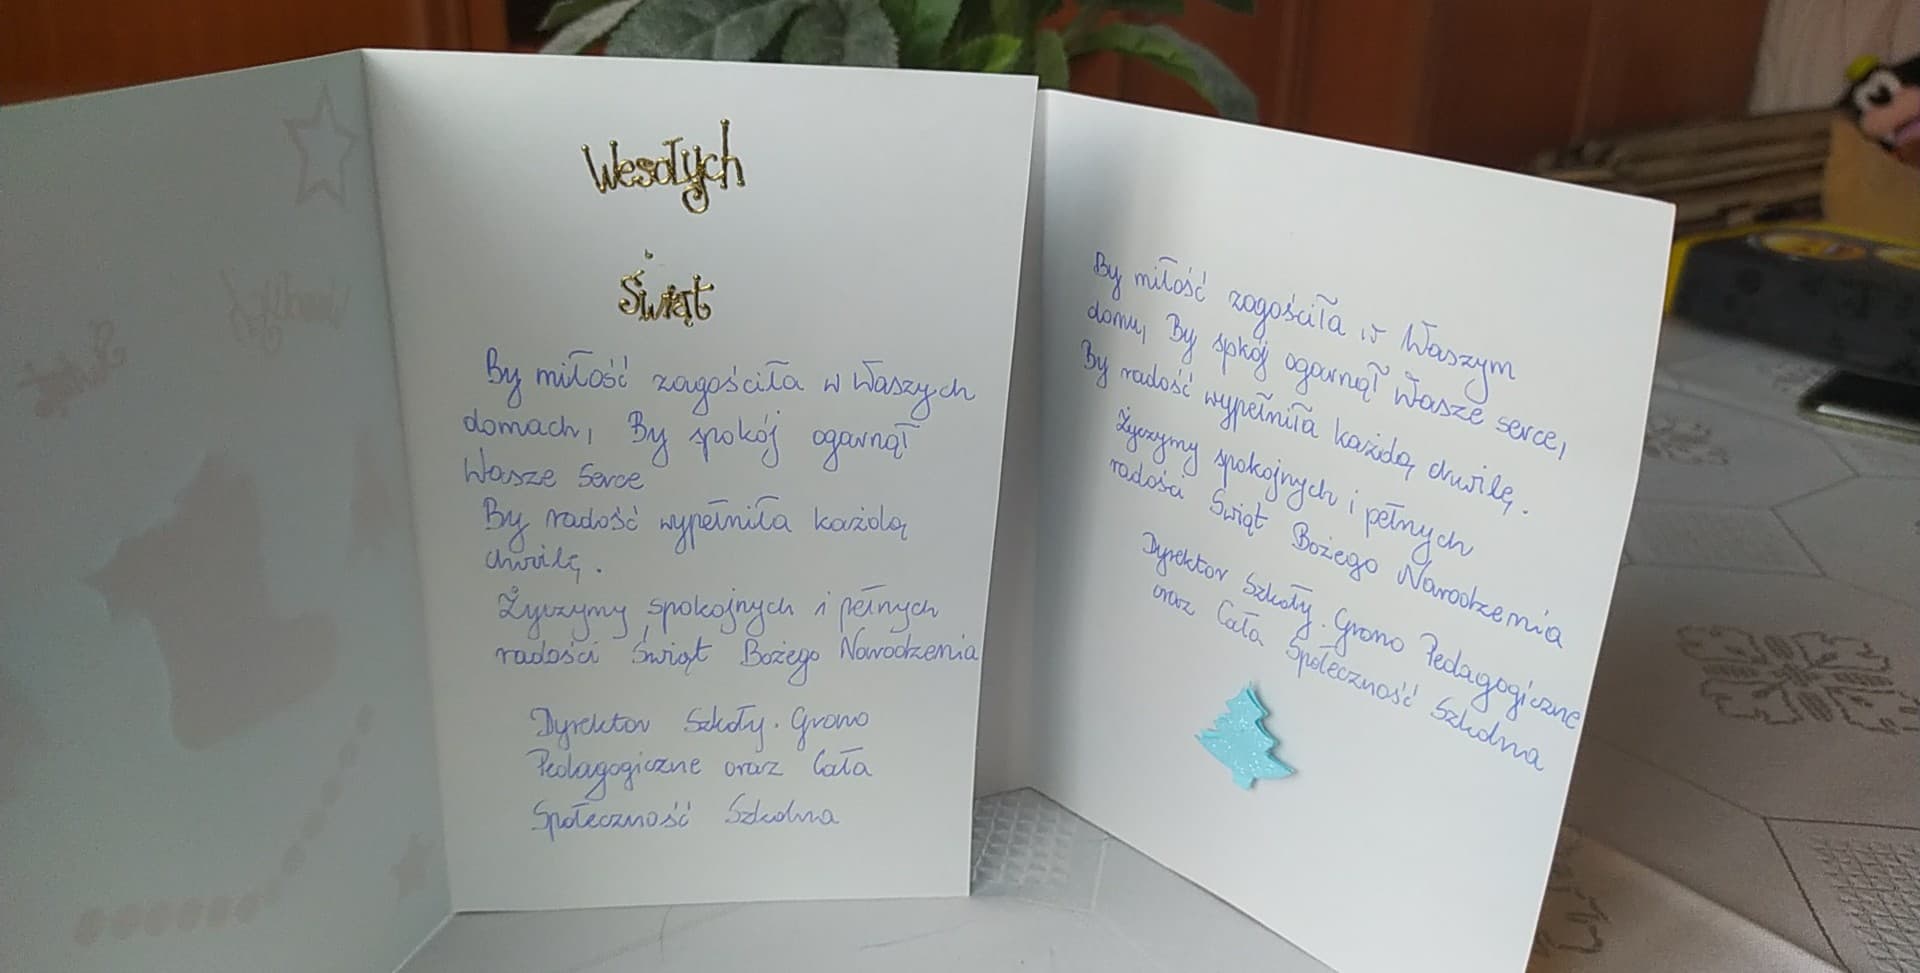 Wesołych
Świąt
By miłość zagościła w Waszych
domach, By spokój ogarnął
Wasze Serce
By radość wypełniła każdą
chwilę.
Życzymy spokojnych i pełnych
radości Świąt Bożego Narodzenia
Dyrektor Szkoły. Grono
Pedagogiczne oraz Cała
Społeczność Szkolna
By miłość zagościła w Waszym
domu, By spkój ogarnął Wasze serce,
By radość wypełniła każdą chwilę.
Życzymy spokojnych i pełnych
radości Świąt Bożego Narodzenia
Dyrektor Szkoły. Grono Pedagogiczne
oraz Cała Społeczność Szkolna